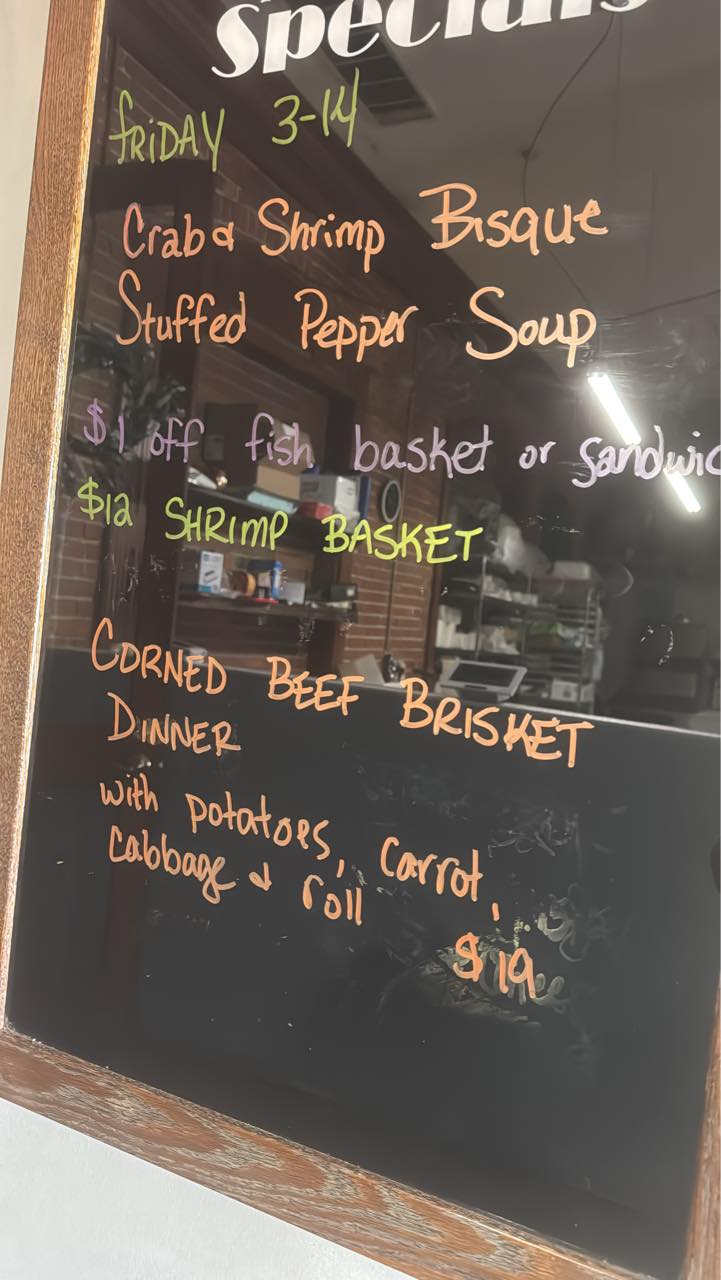 specials
FRIDAY 3-14
Crab & Shrimp Bisque
Stuffed Pepper Soup
$1 off fish basket or sandwic
$12 SHRIMP BASKET
CORNED BEEF BRISKET
DINNER
with potatoes, carrot,
cabbage & roll
$19